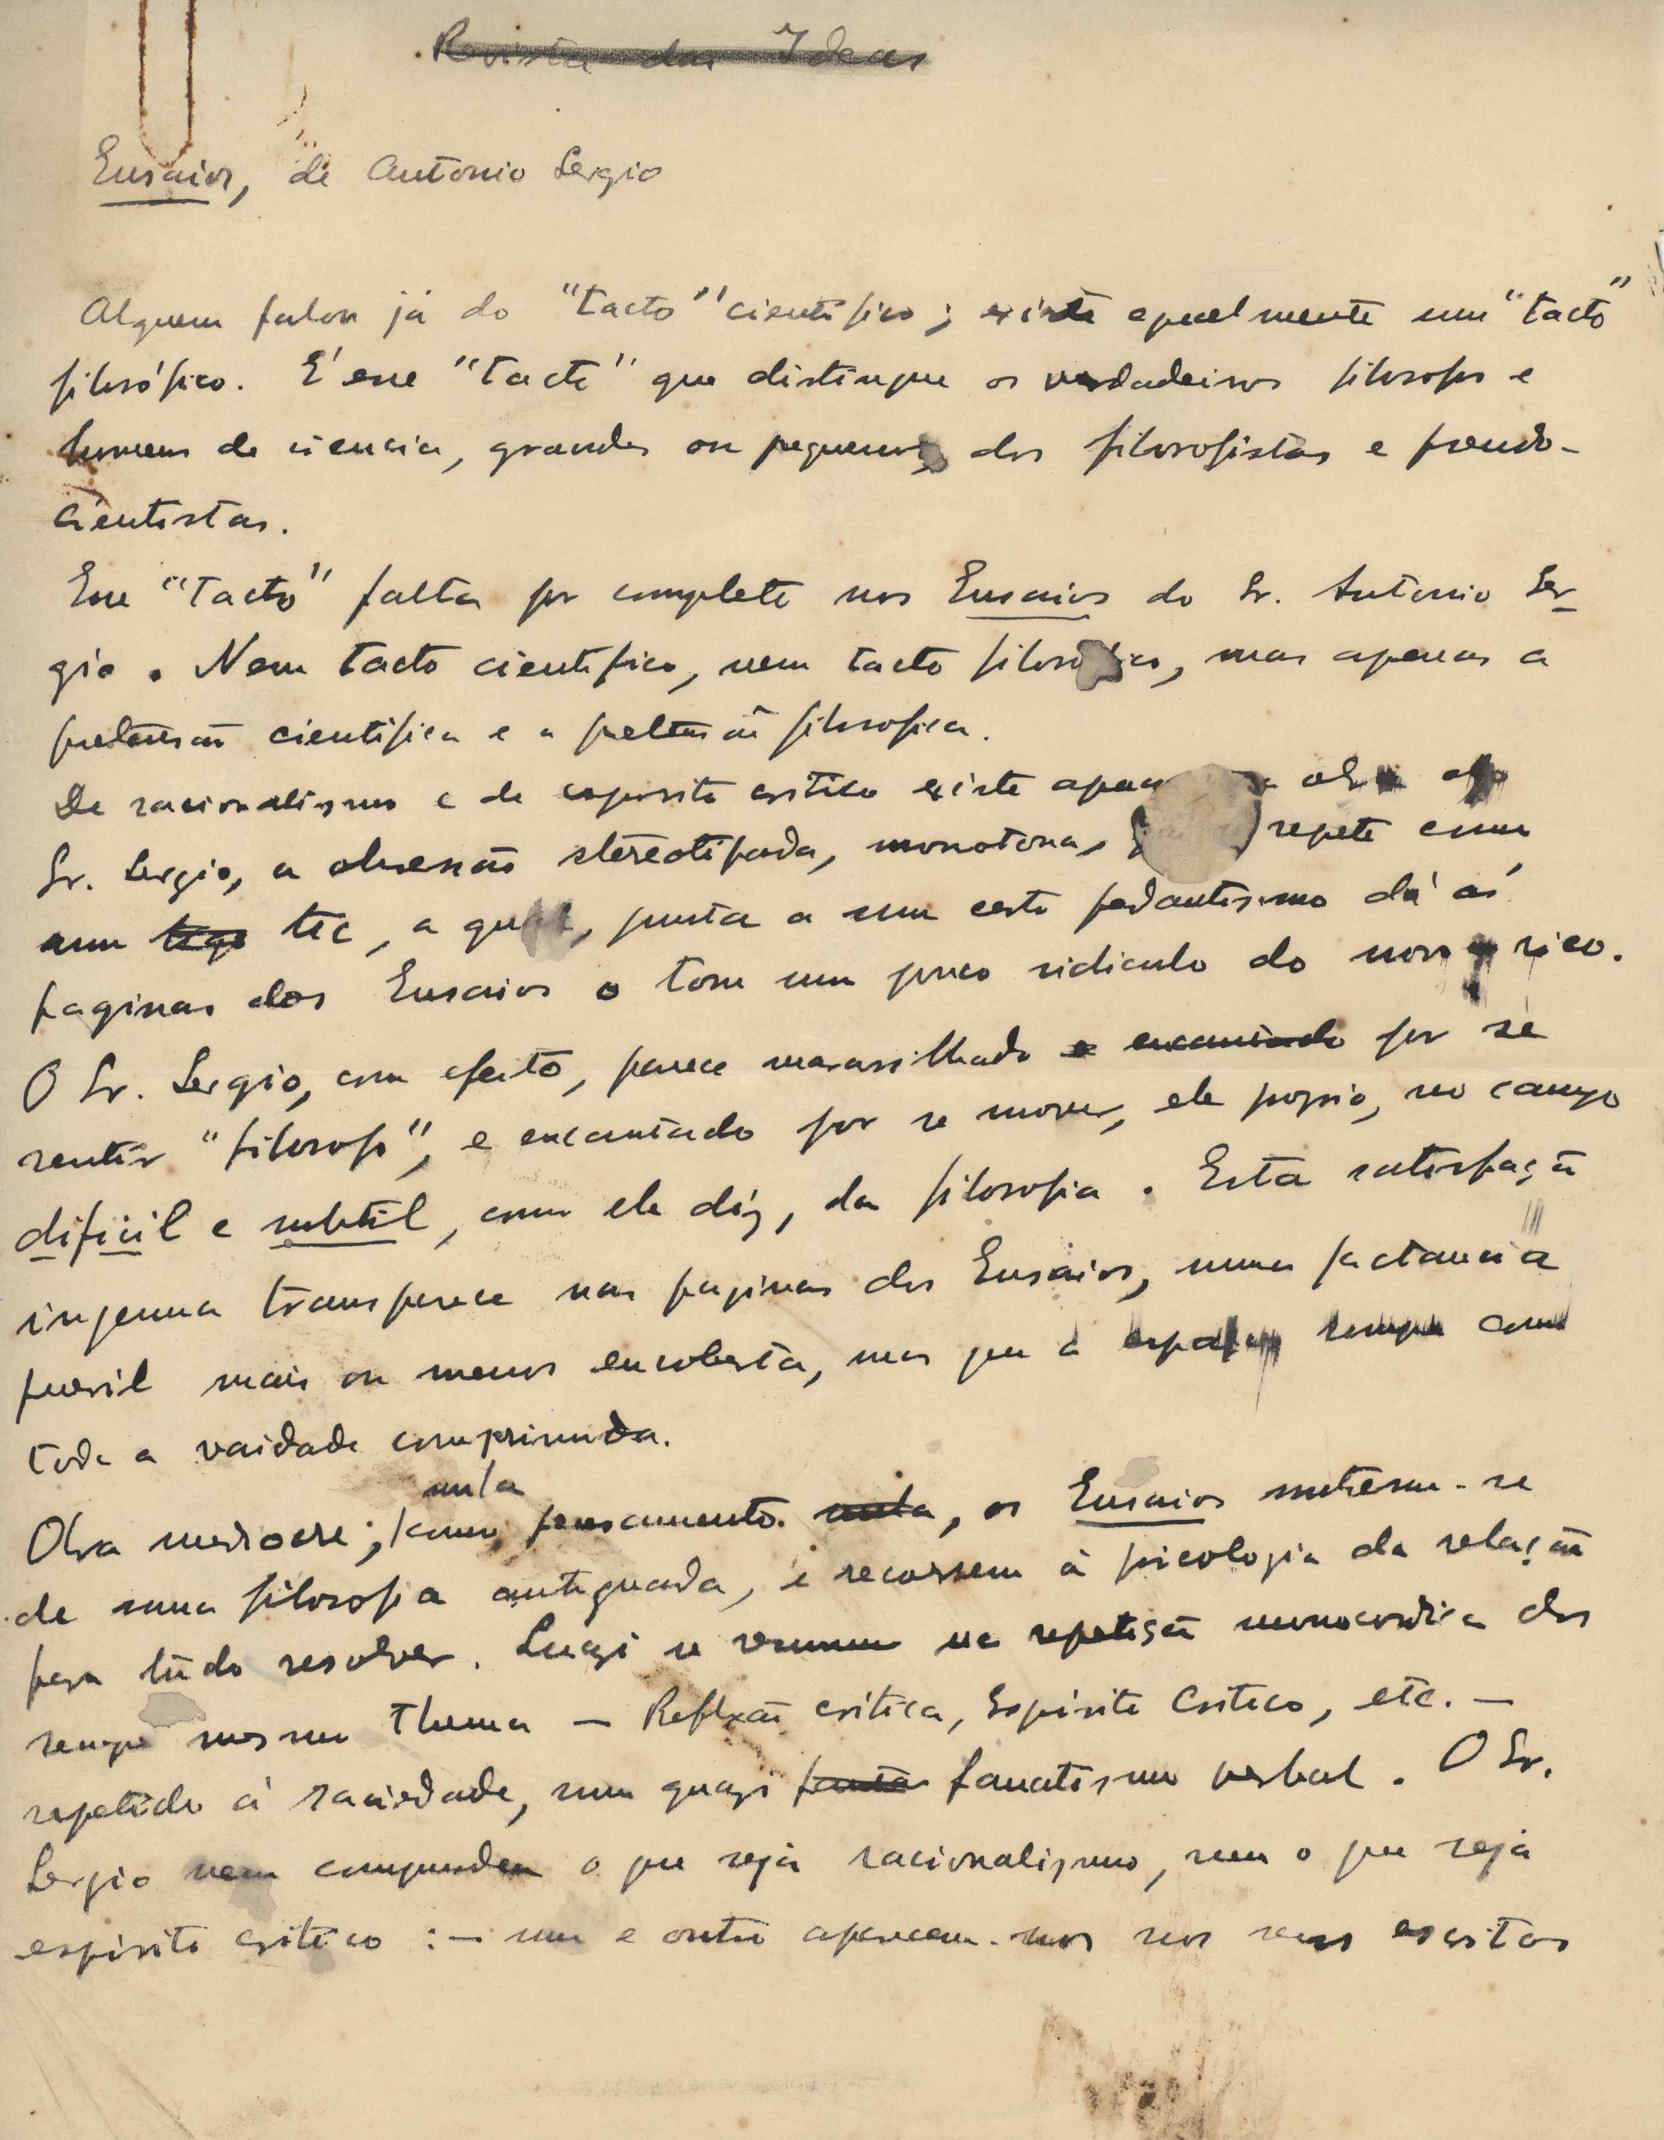 Revista das Ideas
Ensaios, de Antonio Sergio
Alguem falou já do "tacto" cientifico; existe egualmente um "tacto"
filosófico. É esse "tacto" que distingue os verdadeiros filosofos e
homens de ciencia, grandes ou pequenos, dos filosofistas e pseudo-
cientistas.
Esse "tacto" falta por completo nos Ensaios do Sr. Antonio Ser-
gio. Nem tacto cientifico, nem tacto filosofico, mas apenas a
pretensão cientifica e a pretensão filosofica.
De racionalismo e de espirito critico existe apenas na obra do
Sr. Sergio, a obsessão stereotipada, monotona, repete como
num tic, a qual, junta a um certo pedantismo dá ás
paginas dos Ensaios o tom um pouco ridiculo do novo rico.
O Sr. Sergio, com efeito, parece maravilhado e encantado por se
sentir "filosofo", e encantado por se mover, ele proprio, no campo
dificil e subtil, como ele diz, da filosofia. Esta satisfação
ingenua transparece nas paginas dos Ensaios, numa jactancia
pueril mais ou menos encoberta, mas que á espaços rompe com
toda a vaidade comprimida.
nula
Obra mediocre; como pensamento nula, os Ensaios nutrem-se
de uma filosofia antiquada, e recorrem á psicologia da relação
para tudo resolver. Quazi se resumem na repetição monocordica dos
sempre mesmo thema — Reflexão critica, Espirito Critico, etc. —
repetido á saciedade, num quazi fanatismo verbal. O Sr.
Sergio nem compreendeu o que seja racionalismo, nem o que seja
espirito critico : — um e outro aparecem-nos nos seus escritos